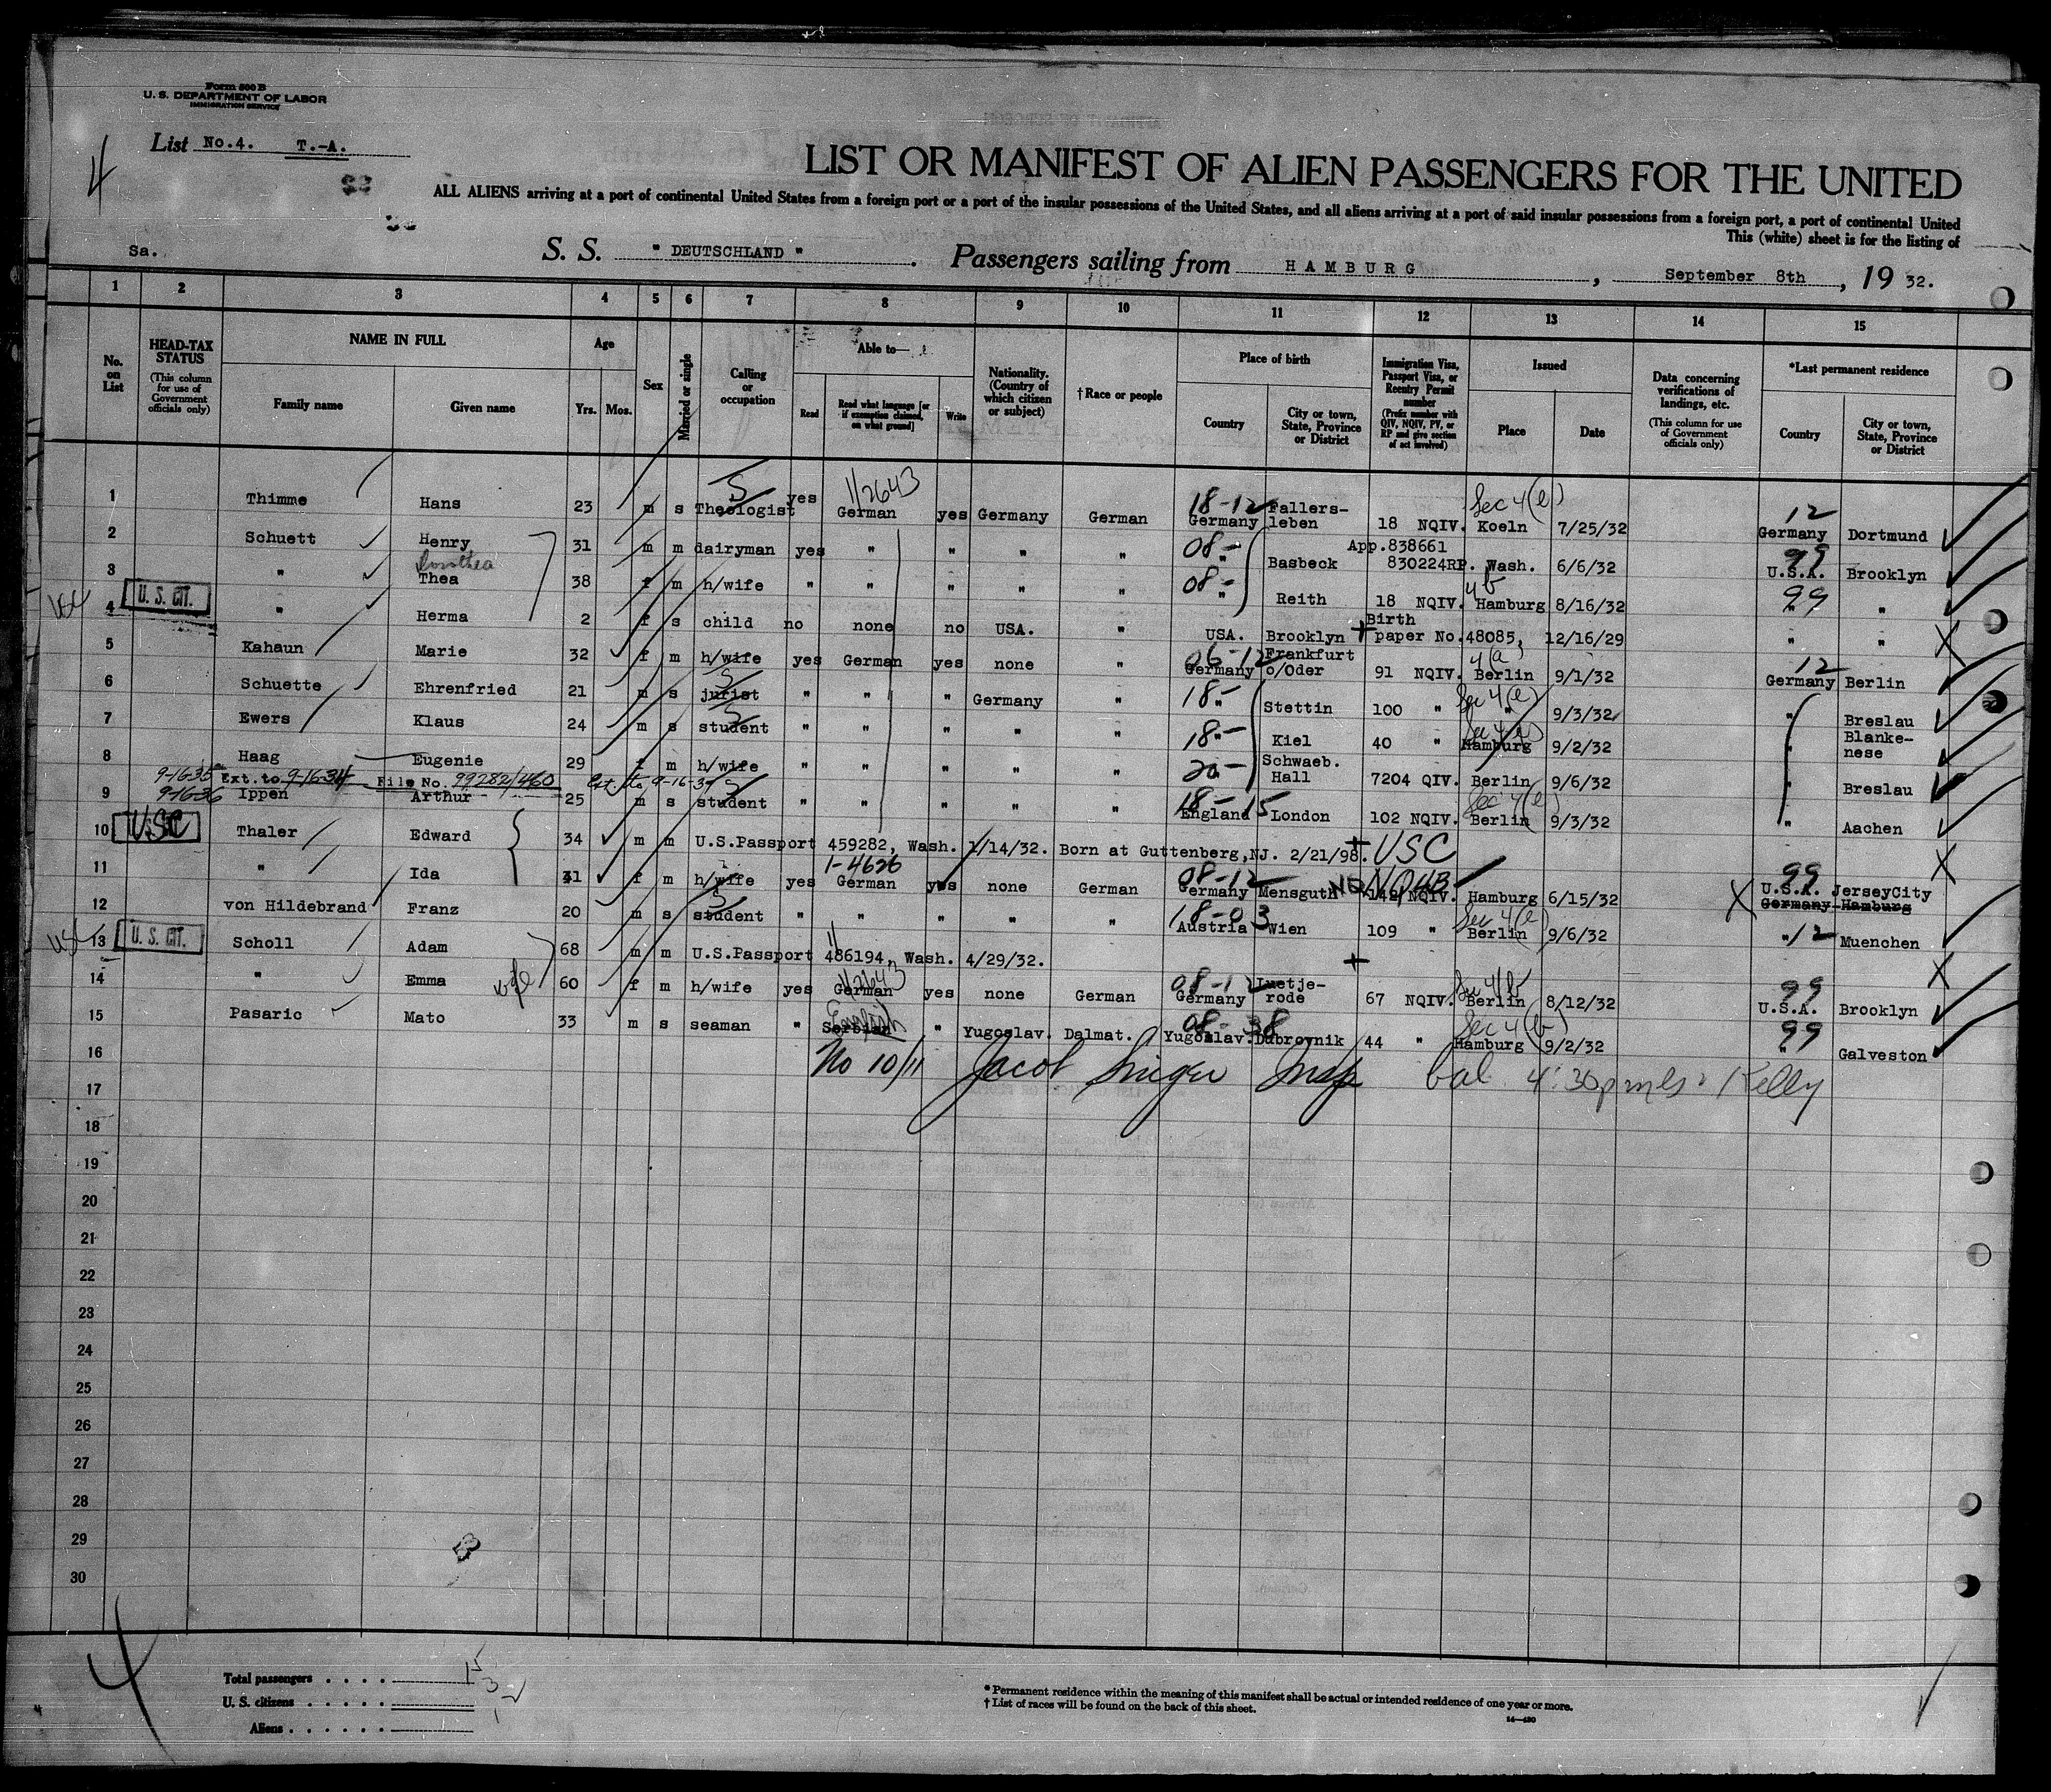 Form 500 B
U. S. DEPARTMENT OF LABOR
IMMIGRATION SERVICE
4
List No.4. T.-A.
LIST OR MANIFEST OF ALIEN PASSENGERS FOR THE UNITED
ALL ALIENS arriving at a port of continental United States from a foreign port or a port of the insular possessions of the United States, and all aliens arriving at a port of said insular possessions from a foreign port, a port of continental United
This (white) sheet is for the listing of
Sa. S. S. "DEUTSCHLAND". Passengers sailing from HAMBURG, September 8th, 19 32.
1 2 3 4 5 6 7 8 9 10 11 12 13 14 15
No. on List
HEAD-TAX STATUS (This column for use of Government officials only)
NAME IN FULL
Family name Given name
Age
Yrs. Mos.
Sex
Married or single
Calling or occupation
Able to—
Read Read what language [or if exemption claimed, on what ground] Write
Nationality. (Country of which citizen or subject)
† Race or people
Place of birth
Country City or town, State, Province or District
Immigration Visa, Passport Visa, or Reentry Permit number (Prefix number with QIV, NQIV, PV, or RP and give section of act involved)
Issued
Place Date
Data concerning verifications of landings, etc. (This column for use of Government officials only)
*Last permanent residence
Country City or town, State, Province or District
S 1/2643 18-12 Sec 4(e) 12
1 Thimme Hans 23 m s Theologist yes German yes Germany German Germany Fallers-leben 18 NQIV. Koeln 7/25/32 Germany Dortmund
08- App.838661 99
2 Schuett Henry 31 m m dairyman yes " " " " " Basbeck 830224RP. Wash. 6/6/32 U.S.A. Brooklyn
Dorothea 08- 4b 99
3 " Thea 38 f m h/wife " " " " " " Reith 18 NQIV. Hamburg 8/16/32 " "
U. S. CIT.
4 " Herma 2 f s child no none no USA. " USA. Brooklyn Birth paper No.48085, 12/16/29 " "
06-12 4(a) 12
5 Kahaun Marie 32 f m h/wife yes German yes none " Germany Frankfurt o/Oder 91 NQIV. Berlin 9/1/32 Germany Berlin
S 18- Sec 4(e)
6 Schuette Ehrenfried 21 m s jurist " " " Germany " " Stettin 100 " " 9/3/32 " Breslau
S 18- Sec 4(e)
7 Ewers Klaus 24 m s student " " " " " " Kiel 40 " Hamburg 9/2/32 " Blanke-nese
20-
8 Haag Eugenie 29 f m h/wife " " " " " " Schwaeb. Hall 7204 QIV. Berlin 9/6/32 " Breslau
9-16-35 Ext. to 9-16-34 File No. 99282/460 Ext. to 9-16-37
9-16-36 S 18-15 Sec 4(e)
9 Ippen Arthur 25 m s student " " " " " England London 102 NQIV. Berlin 9/3/32 " Aachen
USC
10 Thaler Edward 34 m m U.S.Passport 459282, Wash. 1/14/32. Born at Guttenberg,NJ. 2/21/98. USC
1-4626 08-12 99
11 " Ida 31 f m h/wife yes German yes none German Germany Mensguth 142 NQIV. Hamburg 6/15/32 U.S.A. JerseyCity
Germany Hamburg
S 18-03 Sec 4(e)
12 von Hildebrand Franz 20 m s student " " " " " Austria Wien 109 " Berlin 9/6/32 " 12 Muenchen
U. S. CIT.
13 Scholl Adam 68 m m U.S.Passport 486194, Wash. 4/29/32.
wife 1/2643 08-12 Sec 4/b 99
14 " Emma 60 f m h/wife yes German yes none German Germany Luetje-rode 67 NQIV. Berlin 8/12/32 U.S.A. Brooklyn
English 08-38 Sec 4(b) 99
15 Pasaric Mato 33 m s seaman " Serbian " Yugoslav. Dalmat. Yugoslav. Dubrovnik 44 " Hamburg 9/2/32 " Galveston
16 No 10/11 Jacob Singer Insp bal. 4:30pm Kelly
17
18
19
20
21
22
23
24
25
26
27
28
29
30
4
Total passengers . . . . 15
U. S. citizens . . . . . 3
Aliens . . . . . .
* Permanent residence within the meaning of this manifest shall be actual or intended residence of one year or more.
† List of races will be found on the back of this sheet.
14—430